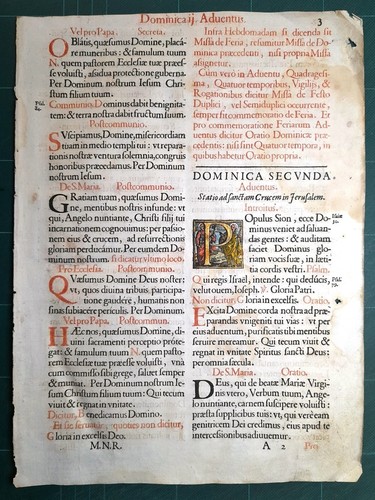 Dominica ij. Aduentus.
3
Vel pro Papa. Secreta.
OBlátis, quæsumus Domine, placá-
re muneribus: & famulum tuum
N. quem pastorem Ecclesiæ tuæ præes-
se voluisti, assidua protectione guberna.
Per Dominum nostrum Iesum Chri-
stum filium tuum.
Communio. Dominus dabit benignita-
tem: & terra nostra dabit fructum suum.
Postcommunio.
SVscipiamus, Domine, misericordiam
tuam in medio templi tui: vt repara-
tionis nostræ ventura solemnia, congruis
honoribus præcedamus. Per Dominum
nostrum Iesum.
De S. Maria. Postcommunio.
GRatiam tuam, quæsumus Domi-
ne, mentibus nostris infunde: vt
qui, Angelo nuntiante, Christi filij tui
incarnationem cognouimus: per passio-
nem eius & crucem, ad resurrectionis
gloriam perducámur. Per eumdem Do-
minum nostrum.
Pro Ecclesia. Postcommunio.
QVæsumus Domine Deus noster:
vt, quos diuina tribuis participa-
tione gaudére, humanis non
sinas subiacére periculis. Per Dominum.
Vel pro Papa. Postcommun.
HÆc nos, quæsumus Domine, di-
uini sacramenti perceptio prote-
gat: & famulum tuum N. quem pasto-
rem Ecclesiæ tuæ præesse voluisti, vnà
cum commisso sibi grege, saluet semper
& muniat. Per Dominum nostrum Ie-
sum Christum filium tuum: Qui tecum
viuit & regnat in vnitate.
Dicitur, Benedicamus Domino.
Et sic seruatur, quoties non dicitur,
Gloria in excelsis Deo.
M.N.R.
Infra Hebdomadam si dicenda sit
Missa de Feria, resumitur Missa de Do-
minica præcedenti, nisi propria Missa
assignetur.
Cum verò in Aduentu, Quadragesi-
ma, Quatuor temporibus, Vigilijs, &
Rogationibus dicitur Missa de Festo
Duplici, vel Semiduplici occurrente,
semper fit commemoratio de Feria. Et
pro commemoratione Feriarum Ad-
uentus dicitur Oratio Dominicæ præ-
cedentis: nisi sint Quatuor tempora, in
quibus habetur Oratio propria.
DOMINICA SECVNDA.
Aduentus.
Statio ad sanctam Crucem in Jerusalem.
Introitus.
POpulus Sion, ecce Do-
minus veniet ad saluan-
das gentes: & auditam
faciet Dominus glo-
riam vocis suæ, in læti-
tia cordis vestri. Psalm.
Qui regis Israel, intende: qui deducis,
velut ouem, Ioseph. V. Gloria Patri.
Non dicitur, Gloria in excelsis. Oratio.
EXcita Domine corda nostra ad præ-
parandas vnigeniti tui vias: vt per
eius aduentum, purificatis tibi mentibus
seruire mereamur. Qui tecum viuit &
regnat in vnitate Spiritus sancti Deus:
per omnia sæcula.
De S. Maria. Oratio.
DEus, qui de beatæ Mariæ Virgi-
nis vtero, Verbum tuum, Ange-
lo nuntiante, carnem suscipere voluisti:
præsta supplicibus tuis: vt, qui verè eam
genitricem Dei credimus, eius apud te
intercessionibus adiuuemur.
A 2 Pro